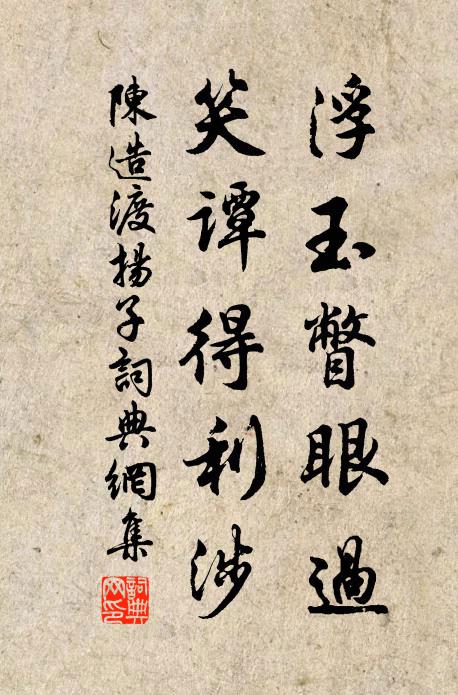 浮玉瞥眼過
笑譚得利涉
陳造渡揚子詞典網集
詞典網印